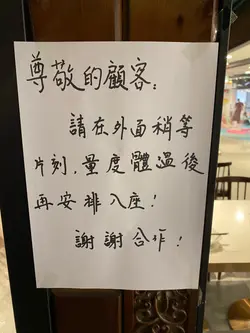 尊敬的顧客：
請在外面稍等
片刻，量度體溫後
再安排入座！
謝謝合作！